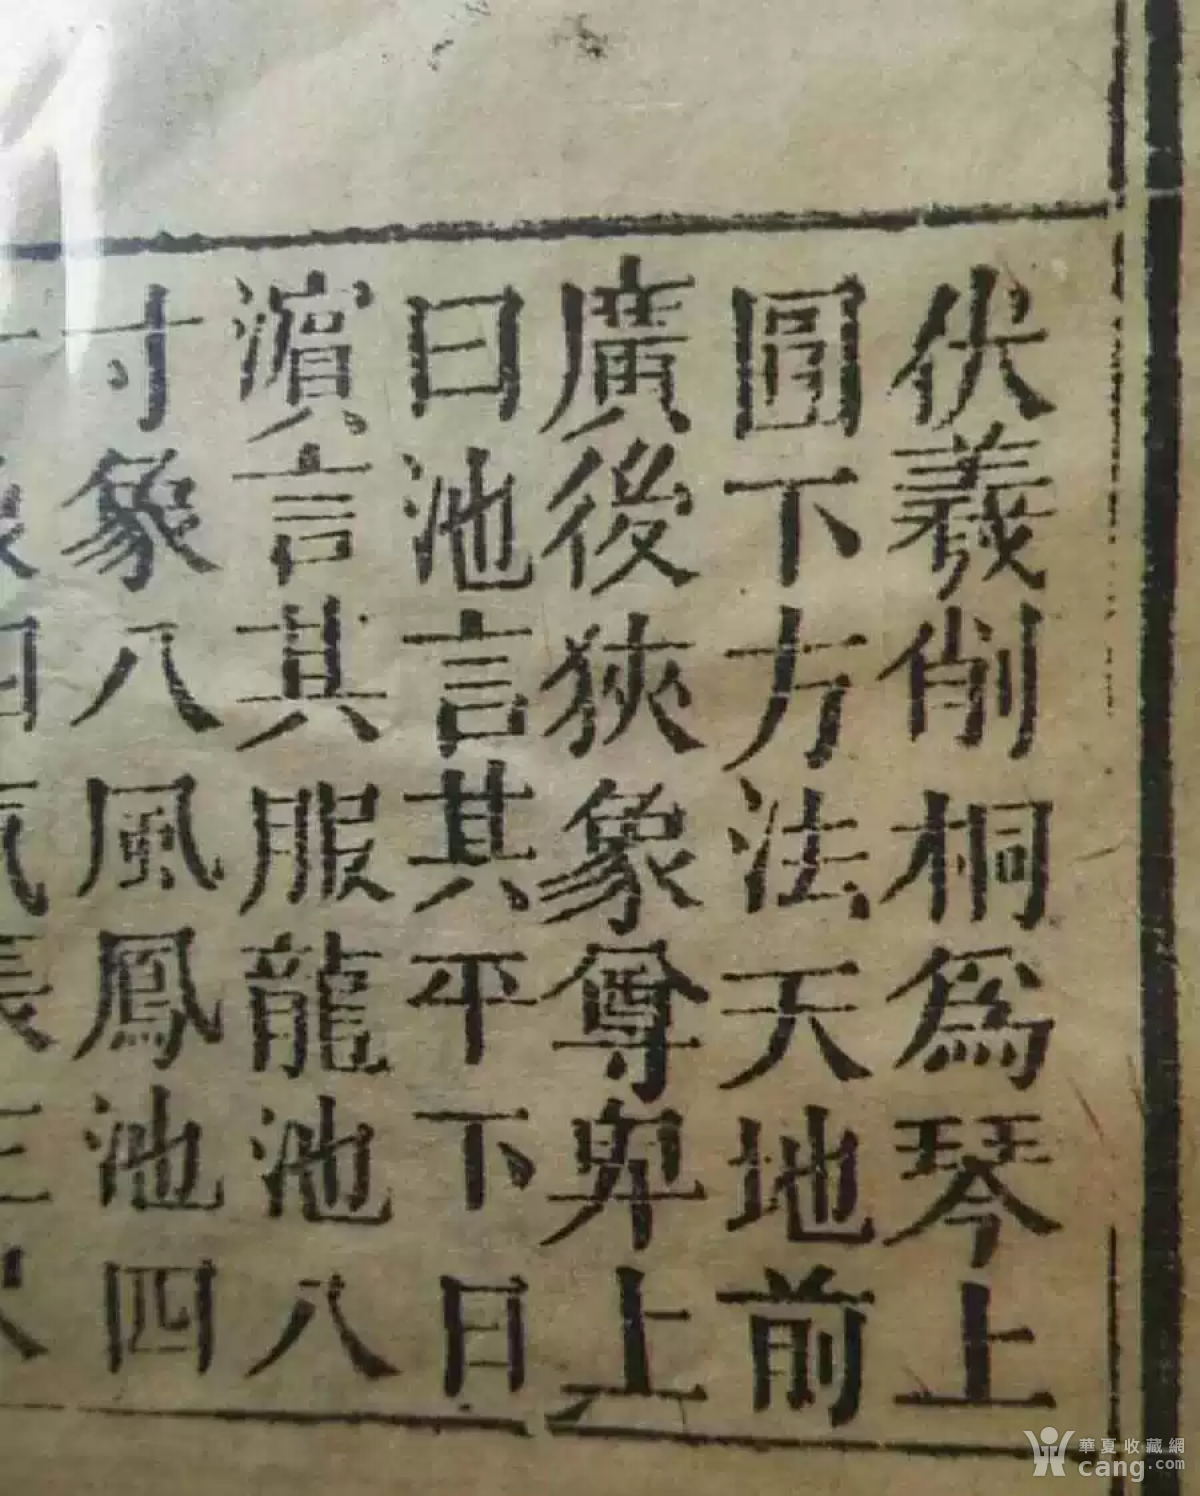 伏羲削桐為琴上
圓下方法天地前
廣後狹象尊卑上
曰池言其平下曰
濵言其服龍池八
寸象八風鳳池四
華夏收藏網
cang.com